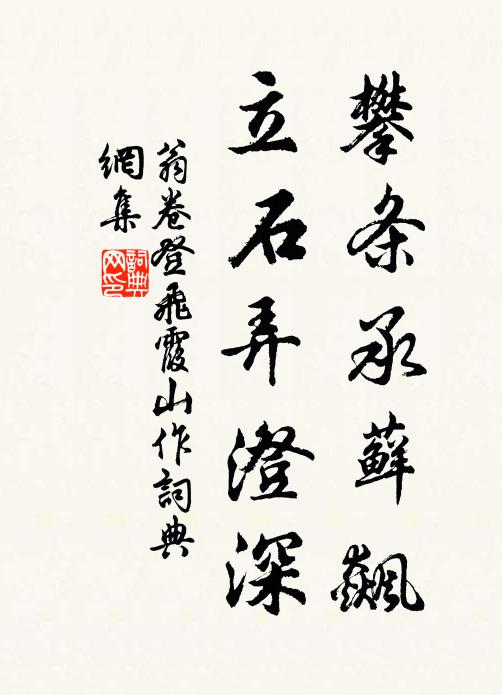 攀条承蘚飆
立石弄澄深
翁卷登飛霞山作詞典
網集
詞典网印